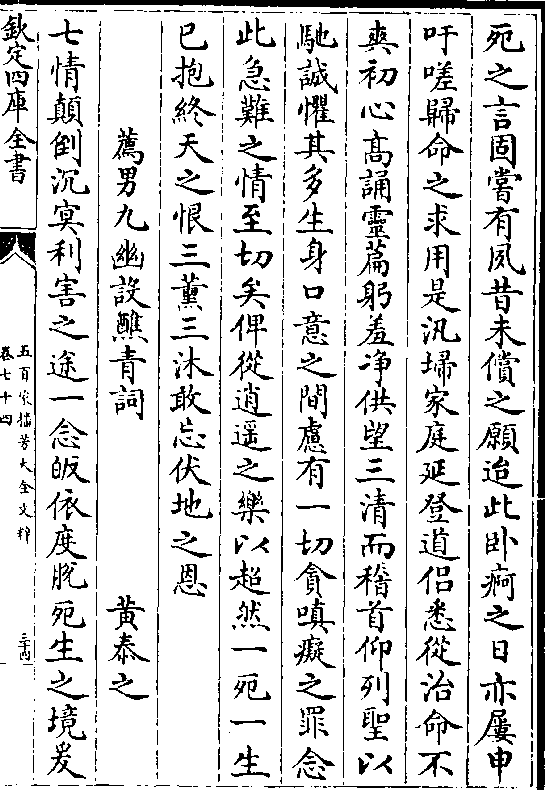 死之言固嘗有夙昔未償之願迨此卧痾之日亦屢申
吁嗟歸命之求用是汛埽家庭延登道侣悉從治命不
爽初心髙誦靈篇躬羞净供望三清而稽首仰列聖以
馳誠懼其多生身口意之間慮有一切貪嗔癡之罪念
此急難之情至切矣俾從逍遥之樂以超然一死一生
已抱終天之恨三薰三沐敢忘伏地之恩
薦男九幽設醮青詞　黄泰之
七情顛倒沉㝠利害之途一念皈依度脱死生之境爰
欽定四庫全書
五百家播芳大全文粹
卷七十四
三十四